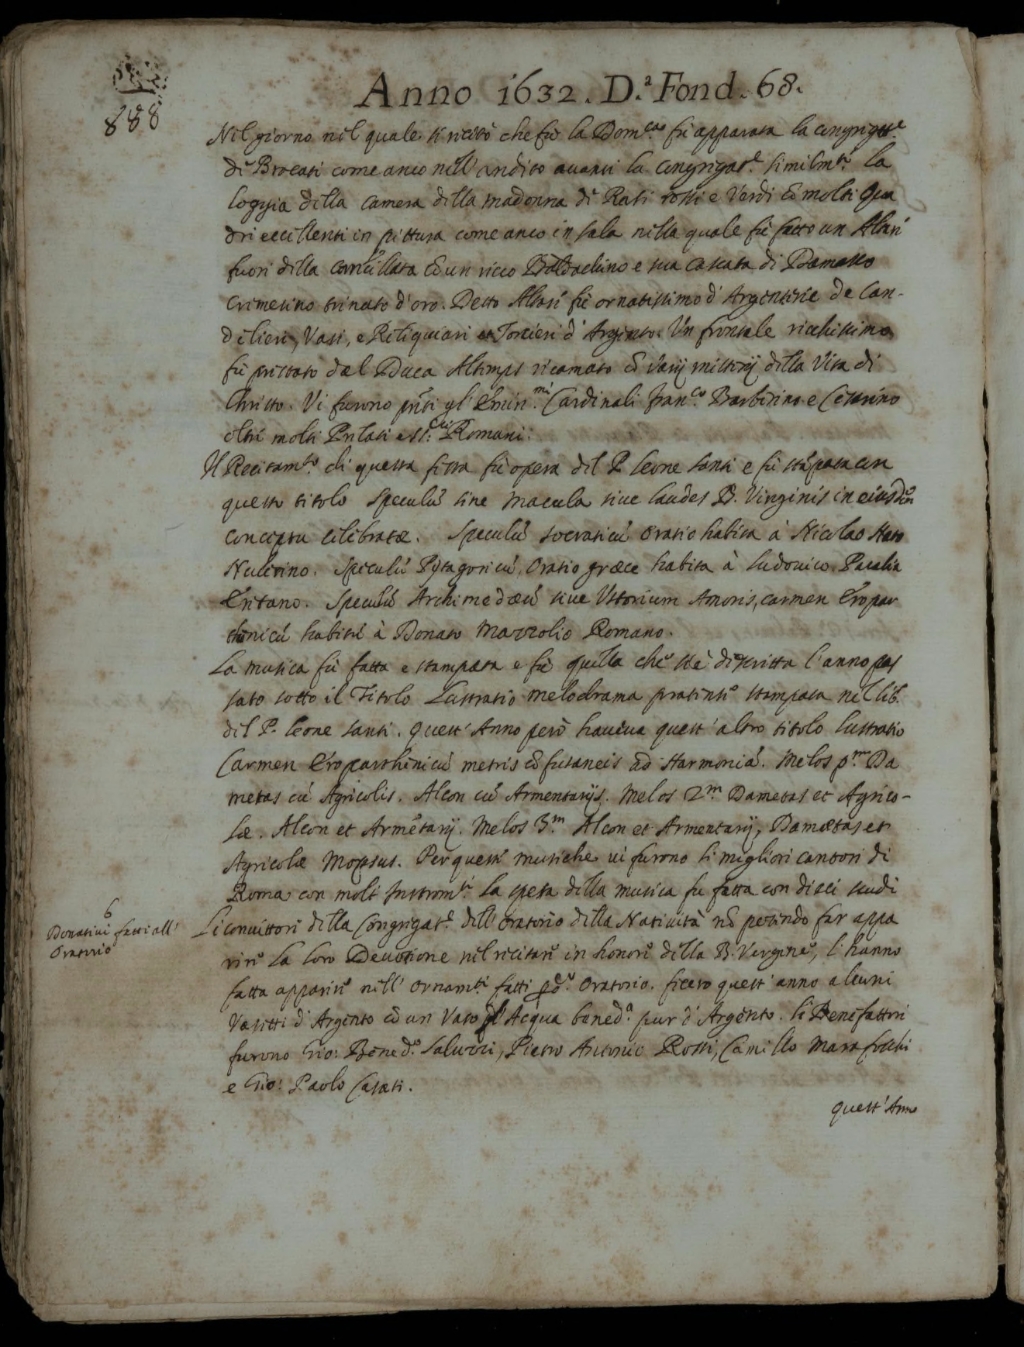 888
Anno 1632. D.ª Fond. 68.
Nel giorno nel quale si recitò che fù la Dom.ca fù apparata la congregat.e
di Broccati come anco nell' andito avanti la congregat.e similm.te la
loggia della camera della madonna di Rasi rossi e Verdi cō molti Qua
dri eccellenti in pittura come anco in sala nella quale fù fatto un Altari
fuori della cancellata cō un ricco Baldachino e sua cascata di Damasco
cremesino trinato d'oro. Detto Altari fù ornatissimo d'Argenterie de Can-
delieri, Vasi, e Reliquiari et Torcieri d'Argento. Un frontale ricchissimo
fù prestato dal Duca Altemps ricamato cō varij misterij della Vita di
Christo. Vi furono pñti gl' Emin.mi Cardinali Fran.co Barberino e Cesarino
oltri molti Prelati e SS.ri Romani.
Il Recitam.to di questa festa fù opera del P. Leone Santi e fù stāpata con
questo titolo Speculū sine macula sive laudes B. Virginis in eiusdem
conceptu celebratæ. Speculū Socraticū Oratio habita à Nicolao
Speculū Pytagoricū, Oratio græce habita à Ludovico
Speculū Archimedæū sive Ustorium Amoris, carmen Eropar
thenicū habitū à Donato Mazzolio Romano.
La musica fù fatta e stampata e fù quella che s'è descritta l'anno pas
sato sotto il Titolo Lustratio melodrama stampata nel lib.
del P. Leone Santi. Quest' Anno però haveva quest' altro titolo Lustratio
Carmen Eroparthenicū metris ad Harmoniā. Melos p.m Da
metas cū Agricolis. Alcon cū Armentarijs. Melos 2.m Dametas et Agrico-
læ. Alcon et Armētarij. Melos 3.m Alcon et Armentarij, Damætas et
Agricolæ Mopsus. Per queste musiche vi furono li migliori cantori di
Roma con molti Instrom.ti la spesa della musica fu fatta con dieci scudi
6
Donativi fatti all'
Oratorio
Li convittori della Congregat.e dell' Oratorio della Natività nō potendo far appa
rire la loro Devotione nel recitare in honore della B. Vergine, l' hanno
fatta apparire nell' ornam.ti fatti Oratorio. fecero quest' anno alcuni
Vasetti d'Argento cō un Vaso d'Acqua bened.a pur d'Argento. li Benefattori
furono Gio: Bened.o Saluzzi, Pietro Antonio Rossi, Camillo Marefoschi
e Gio: Paolo Casati.
Quest' Anno